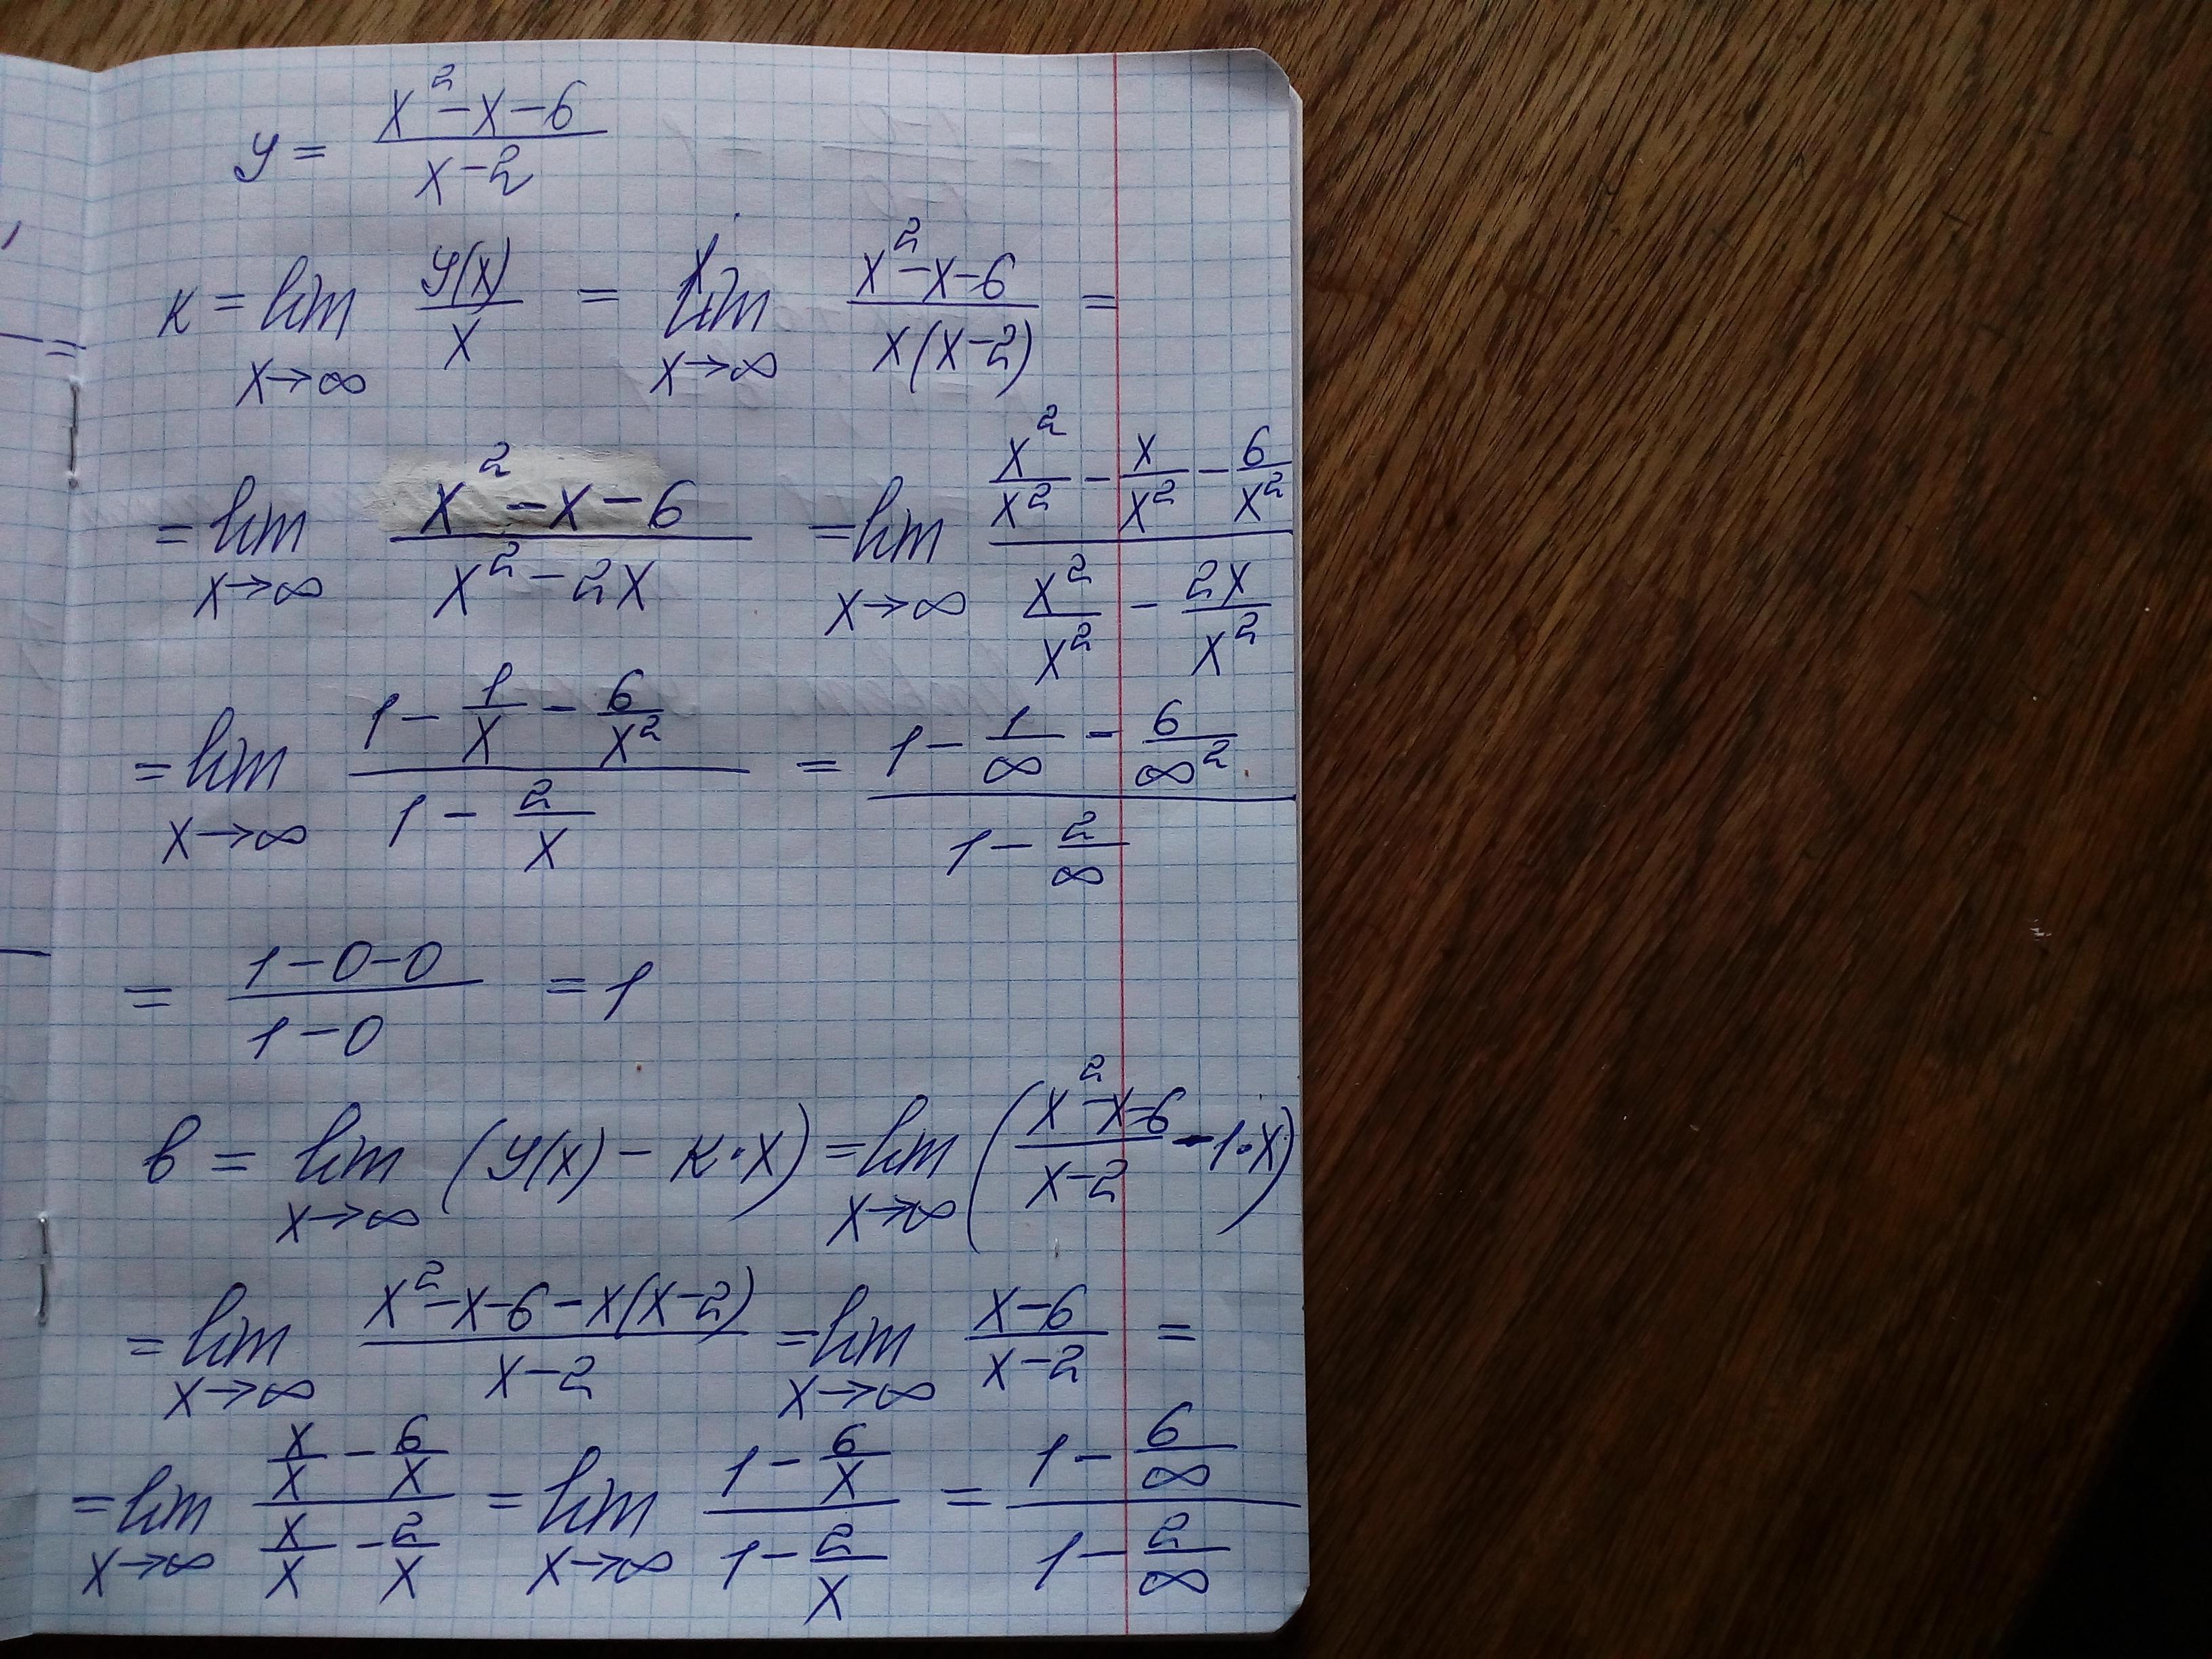 y = (x² - x - 6)/(x - 2)
к = lim x→∞ y(x)/x = lim x→∞ (x² - x - 6)/(x(x - 2)) =
= lim x→∞ (x² - x - 6)/(x² - 2x) = lim x→∞ (x²/x² - x/x² - 6/x²)/(x²/x² - 2x/x²)
= lim x→∞ (1 - 1/x - 6/x²)/(1 - 2/x) = (1 - 1/∞ - 6/∞²)/(1 - 2/∞)
= (1 - 0 - 0)/(1 - 0) = 1
в = lim x→∞ (y(x) - к·x) = lim x→∞ ((x² - x - 6)/(x - 2) - 1·x)
= lim x→∞ (x² - x - 6 - x(x - 2))/(x - 2) = lim x→∞ (x - 6)/(x - 2) =
= lim x→∞ (x/x - 6/x)/(x/x - 2/x) = lim x→∞ (1 - 6/x)/(1 - 2/x) = (1 - 6/∞)/(1 - 2/∞)